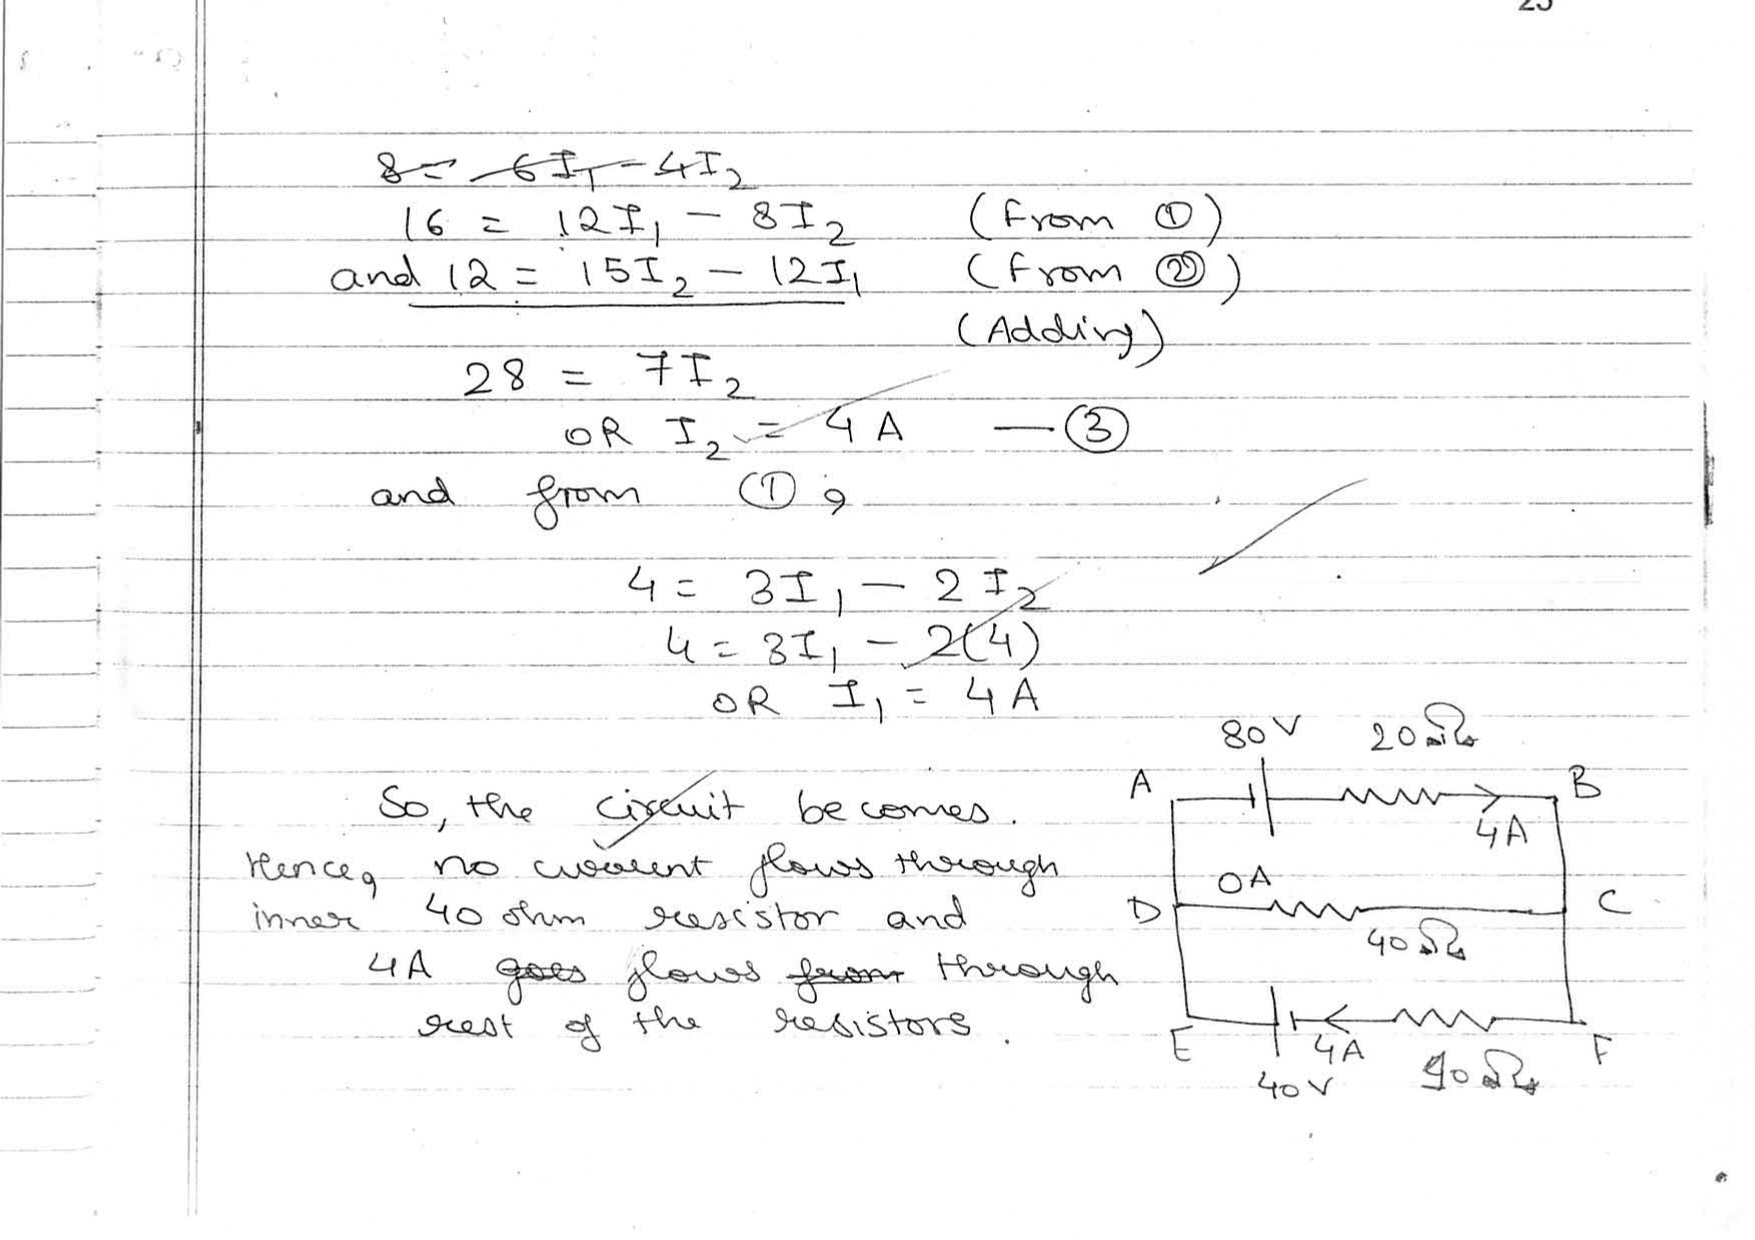 25
8 = 6I1 - 4I2
16 = 12I1 - 8I2 (From ①)
and 12 = 15I2 - 12I1 (From ②)
(Adding)
28 = 7I2
OR I2 = 4A — ③
and from ①,
4 = 3I1 - 2I2
4 = 3I1 - 2(4)
OR I1 = 4A
So, the circuit becomes.
Hence, no current flows through
inner 40 ohm resistor and
4A goes flows from through
rest of the resistors.
80V 20Ω
A B
4A
0A
D C
40Ω
E 4A F
40V